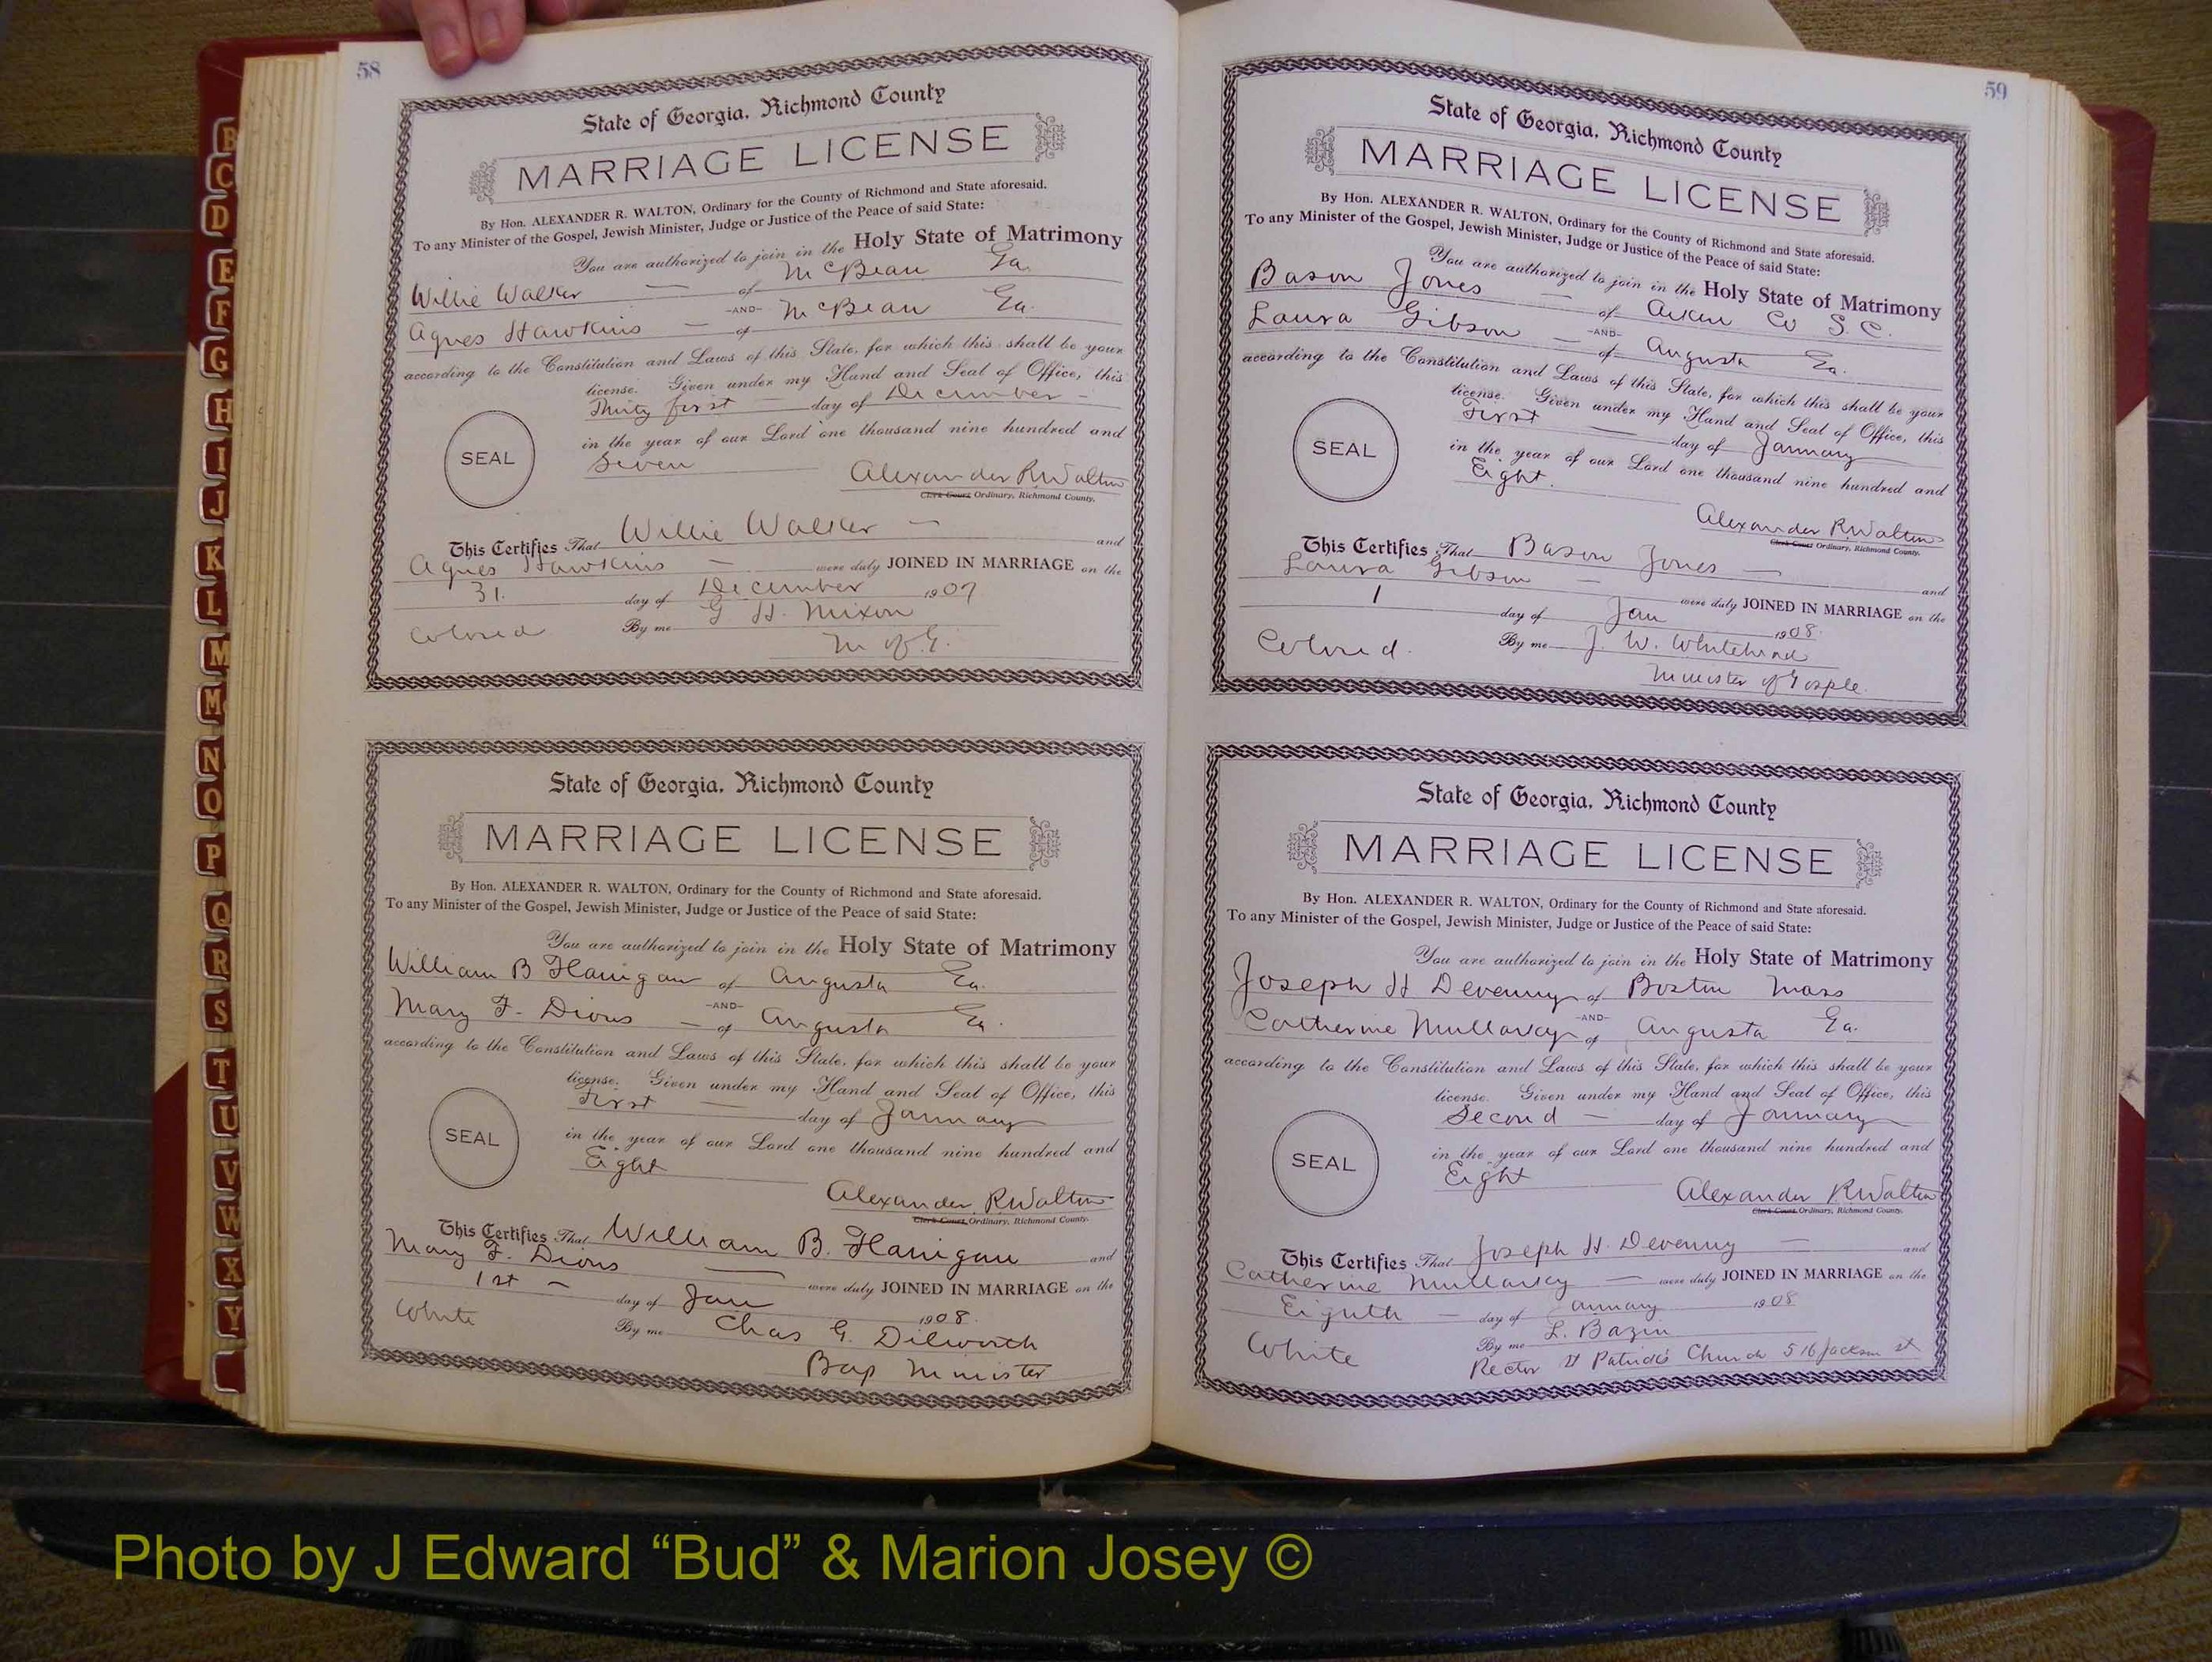 58
State of Georgia, Richmond County
MARRIAGE LICENSE
By Hon. ALEXANDER R. WALTON, Ordinary for the County of Richmond and State aforesaid.
To any Minister of the Gospel, Jewish Minister, Judge or Justice of the Peace of said State:
You are authorized to join in the Holy State of Matrimony
Willie Walker — of McBean Ga.
—AND—
Agnes Hawkins — of McBean Ga.
according to the Constitution and Laws of this State, for which this shall be your
license. Given under my Hand and Seal of Office, this
Thirty first — day of December —
in the year of our Lord one thousand nine hundred and
SEAL
Seven
Alexander R Walton
Clerk Court Ordinary, Richmond County.
This Certifies That Willie Walker — and
Agnes Hawkins — were duly JOINED IN MARRIAGE on the
31. day of December 1907
Colored By me G H. Nixon
M of G.
State of Georgia, Richmond County
MARRIAGE LICENSE
By Hon. ALEXANDER R. WALTON, Ordinary for the County of Richmond and State aforesaid.
To any Minister of the Gospel, Jewish Minister, Judge or Justice of the Peace of said State:
You are authorized to join in the Holy State of Matrimony
William B Flanigan of Augusta Ga.
—AND—
Mary F. Dious — of Augusta Ga.
according to the Constitution and Laws of this State, for which this shall be your
license. Given under my Hand and Seal of Office, this
First — day of January
in the year of our Lord one thousand nine hundred and
SEAL
Eight
Alexander R Walton
Clerk Court Ordinary, Richmond County.
This Certifies That William B. Flanigan and
Mary F. Dious — were duly JOINED IN MARRIAGE on the
1st — day of Jan 1908.
White By me Chas G. Dilworth
Bap Minister
59
State of Georgia, Richmond County
MARRIAGE LICENSE
By Hon. ALEXANDER R. WALTON, Ordinary for the County of Richmond and State aforesaid.
To any Minister of the Gospel, Jewish Minister, Judge or Justice of the Peace of said State:
You are authorized to join in the Holy State of Matrimony
Bason Jones — of Aiken Co S.C.
—AND—
Laura Gibson — of Augusta Ga.
according to the Constitution and Laws of this State, for which this shall be your
license. Given under my Hand and Seal of Office, this
First — day of January
in the year of our Lord one thousand nine hundred and
SEAL
Eight.
Alexander R Walton
Clerk Court Ordinary, Richmond County.
This Certifies That Bason Jones — and
Laura Gibson — were duly JOINED IN MARRIAGE on the
1 day of Jan 1908.
Colored. By me J. W. Whitehead
Minister of Gosple.
State of Georgia, Richmond County
MARRIAGE LICENSE
By Hon. ALEXANDER R. WALTON, Ordinary for the County of Richmond and State aforesaid.
To any Minister of the Gospel, Jewish Minister, Judge or Justice of the Peace of said State:
You are authorized to join in the Holy State of Matrimony
Joseph H Devenny of Boston Mass
—AND—
Catherine Mullarky of Augusta Ga.
according to the Constitution and Laws of this State, for which this shall be your
license. Given under my Hand and Seal of Office, this
Second — day of January
in the year of our Lord one thousand nine hundred and
SEAL
Eight
Alexander R Walton
Clerk Court Ordinary, Richmond County.
This Certifies That Joseph H. Devenny — and
Catherine Mullarky — were duly JOINED IN MARRIAGE on the
Eighth — day of January 1908
White By me L. Bazin
Rector St Patrick's Church 516 Jackson st
B
C
D
E
F
G
H
I
J
K
L
M
Mc
N
O
P
Q
R
S
T
U
V
W
X
Y
Photo by J Edward “Bud” & Marion Josey ©